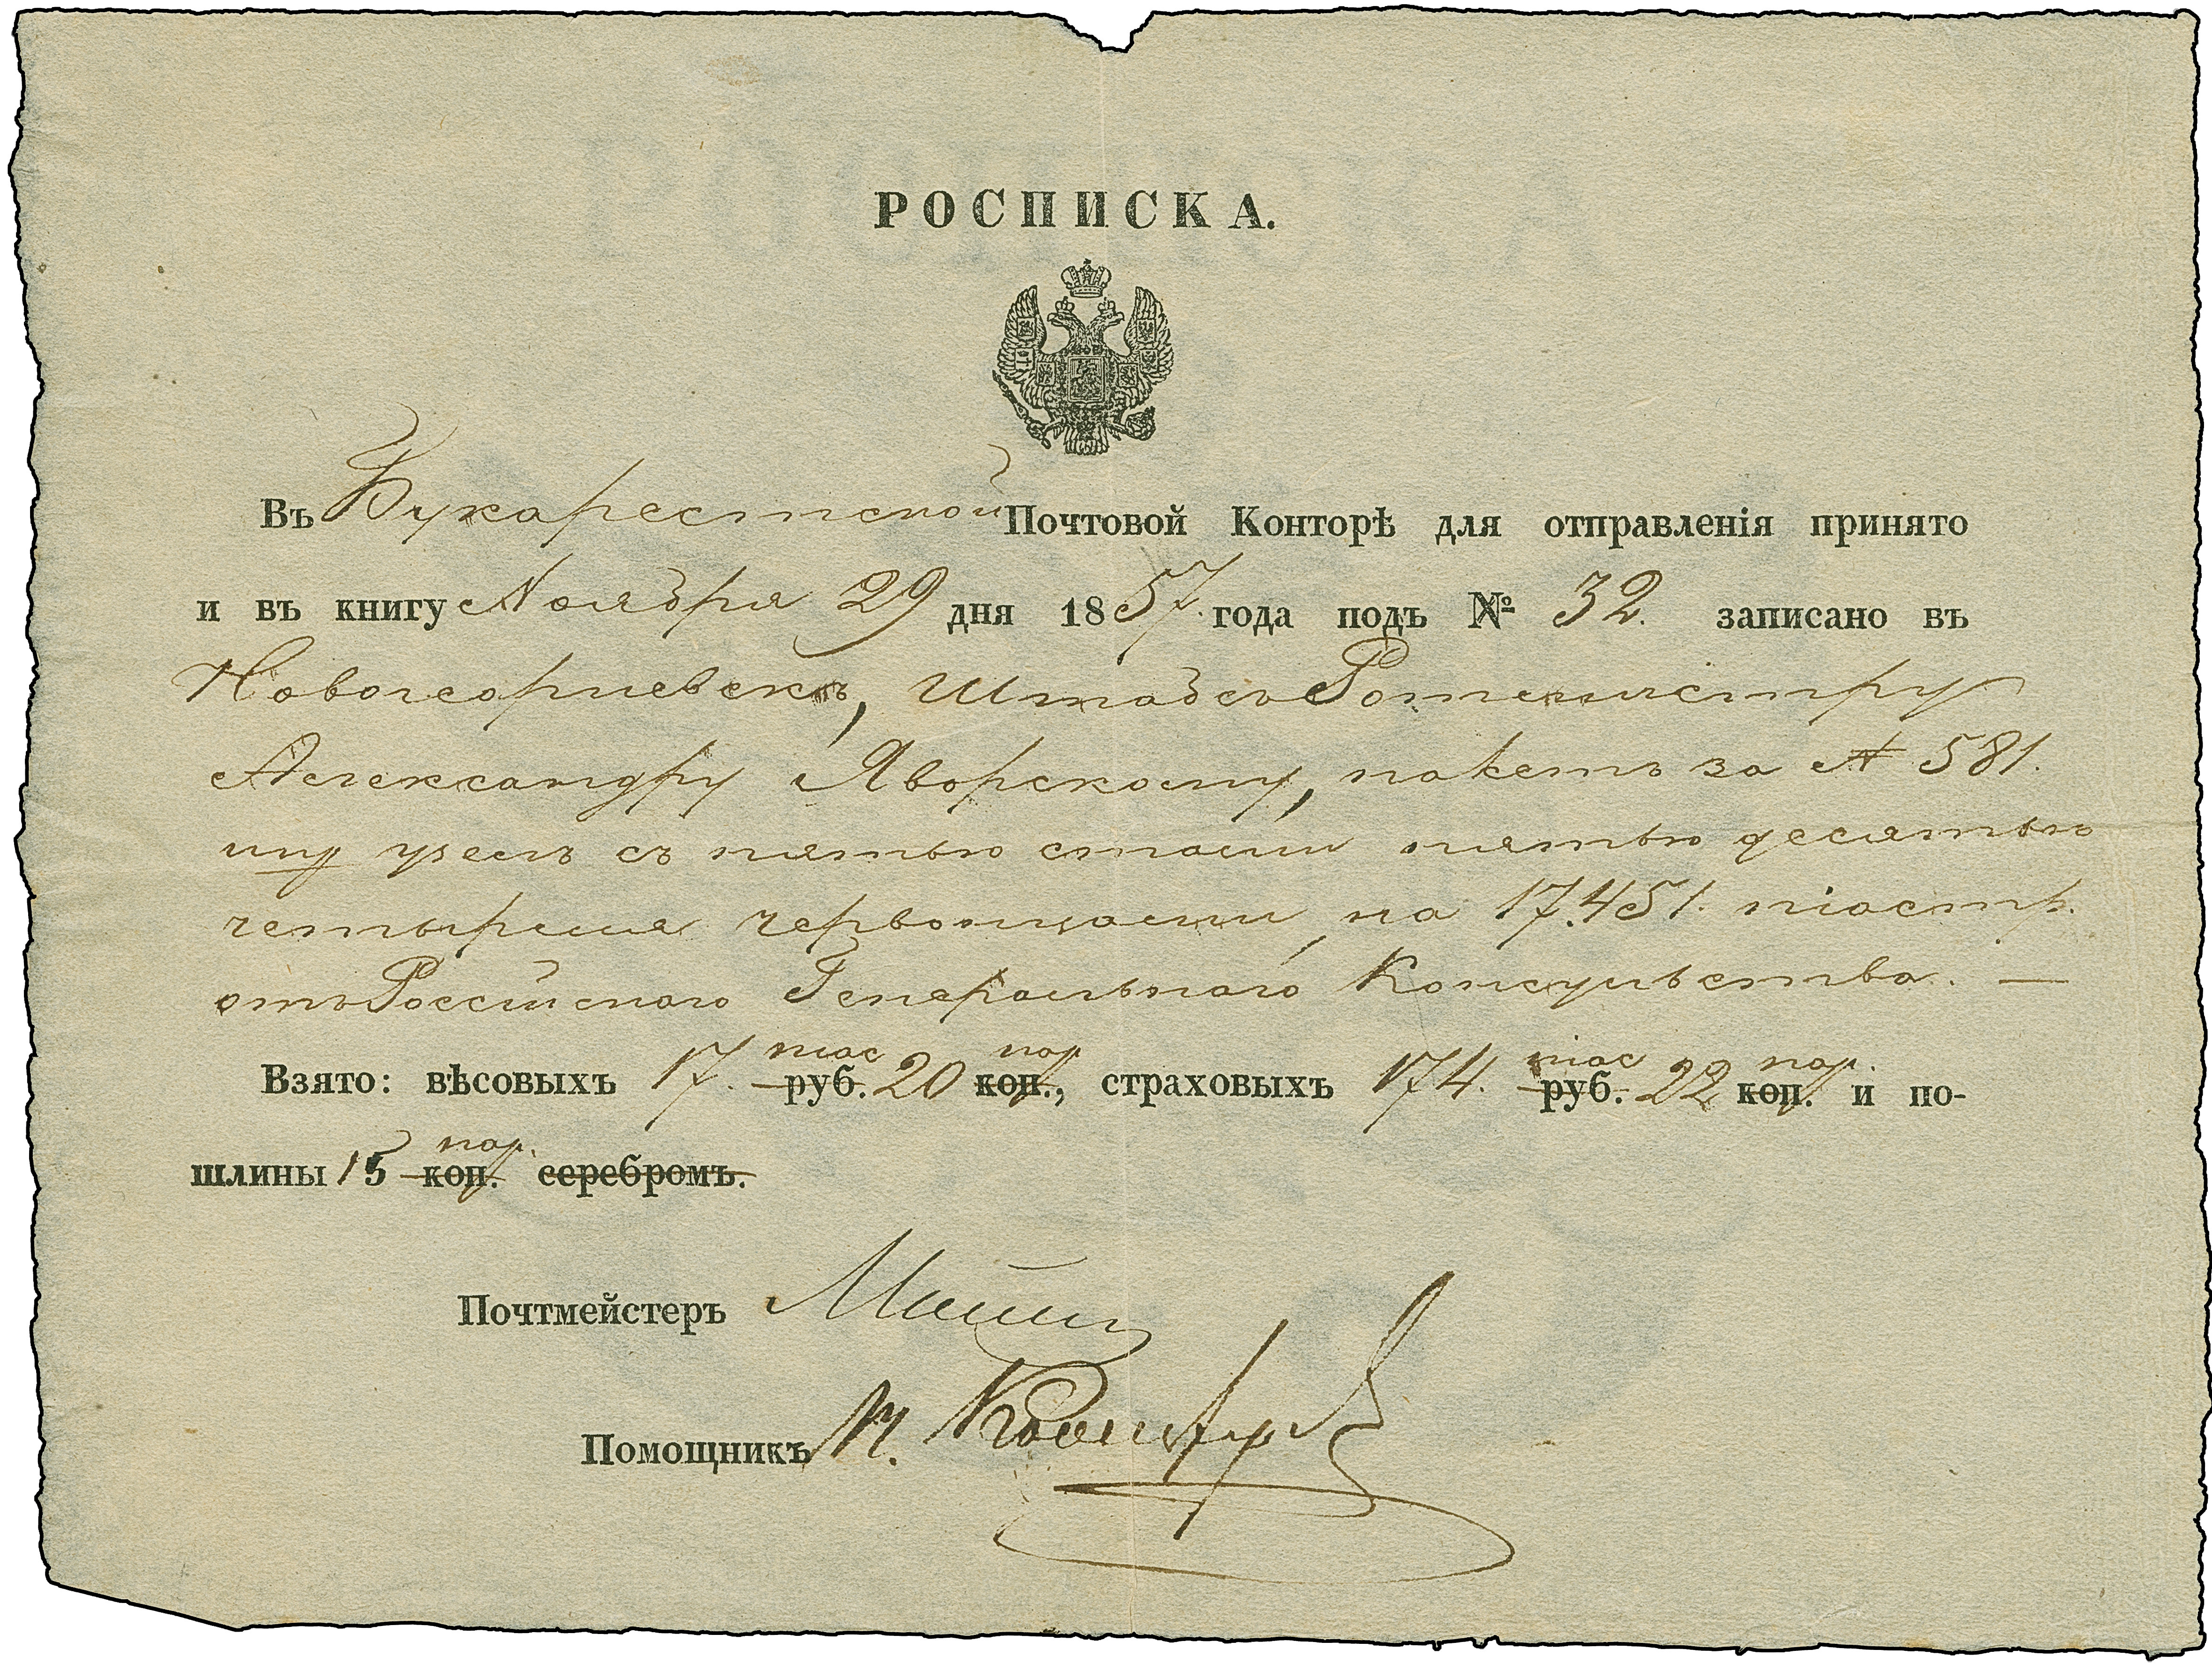 РОСПИСКА.
Въ Букарестской Почтовой Конторѣ для отправленія принято
и въ книгу Ноября 29 дня 1857. года подъ № 32. записано въ
Новогеоргіевскъ, Штабсъ Ротмистру
Александру Яворскому, пакетъ за № 581.
узелъ съ пятью стами пятью десятью
четырьмя червонцами, на 17.451. піастр.
отъ Россійскаго Генеральнаго Консульства. —
піас пар піас пар.
Взято: вѣсовыхъ 17. руб. 20 коп., страховыхъ 174. руб. 22 коп. и по-
пар.
шлины 15 коп. серебромъ.
Почтмейстеръ
Помощникъ